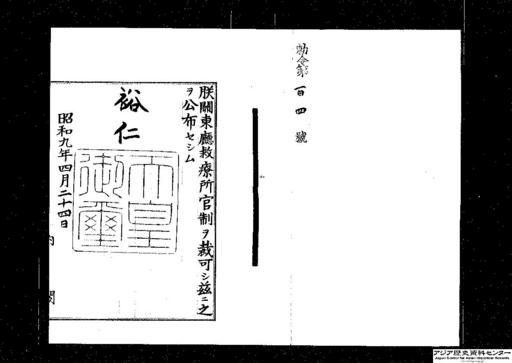 勅令第百四號
朕關東廳救療所官制ヲ裁可シ茲ニ之
ヲ公布セシム
裕仁
天皇御璽
昭和九年四月二十四日
内閣
アジア歴史資料センター
Japan Center for Asian Historical Records